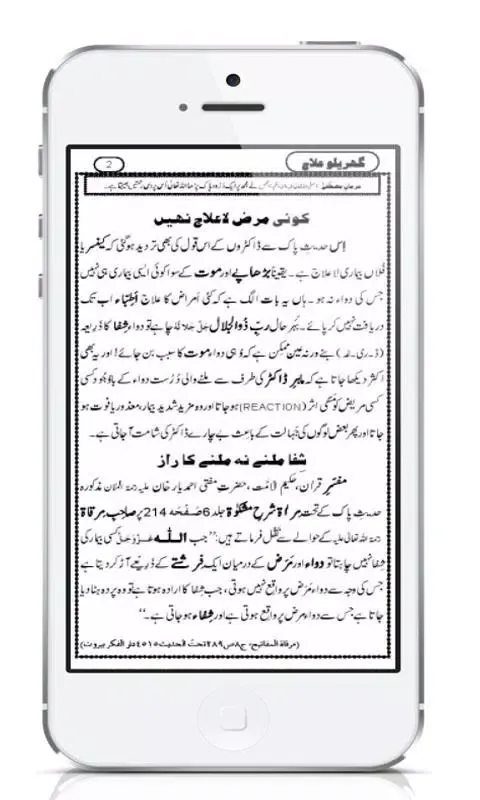 2
گھریلو علاج
کوئی مرض لاعلاج نہیں
اِس حدیثِ پاک سے ڈاکٹروں کے اس قول کی بھی تردید ہوگئی کہ کینسر یا
فُلاں بیماری لاعلاج ہے۔ یقیناً بڑھاپے اور موت کے سوا کوئی ایسی بیماری ہی نہیں
جس کی دواء نہ ہو۔ ہاں یہ بات الگ ہے کہ کئی اَمراض کا علاج اَطِبّاء اب تک
دریافت نہیں کر پائے۔ بَہَر حال ربِّ ذُوالجلال جَلَّ جَلَالُہٗ چاہے تو دواء شِفا کا ذَرِیعہ
بنے ورنہ عین ممکن ہے کہ وُہی دواء موت کا سبب بن جائے! اور یہ بھی
اکثر دیکھا جاتا ہے کہ ماہِر ڈاکٹر کی طرف سے ملنے والی دُرُست دواء کے باوُجُود کسی
کسی مریض کو مَنفی اثر (REACTION) ہو جاتا اور وہ مزید شدید بیمار، معذور یا فوت ہو
جاتا اور پھر بعض لوگوں کی جَہالت کے باعِث بے چارے ڈاکٹر کی شامت آجاتی ہے۔
شِفا ملنے نہ ملنے کا راز
مُفَسِّرِ قرآن، حکیمُ الْاُمّت، حضرتِ مفتی احمد یار خان علیہ رحمۃ الحنّان مذکورہ
حدیثِ پاک کے تحت مِراٰۃ شَرحِ مِشکوٰۃ جلد 6 صَفْحَہ 214 پر صاحِبِ مِرقاۃ
رحمۃ اللہ تعالیٰ علیہ کے حوالے سے نَقْل فرماتے ہیں: ”جب اللہ عَزَّوَجَلَّ کسی بیمار کی
شِفا نہیں چاہتا تو دواء اور مَرَض کے درمیان ایک فِرِشتے کے ذَرِیعے آڑ کر دیتا ہے
جس کی وجہ سے دواء مَرَض پر واقِع نہیں ہوتی، جب شِفا کا ارادہ ہوتا ہے تو وہ پردہ ہٹا دیا
جاتا ہے جس سے دواء مَرَض پر واقِع ہوتی ہے اور شِفاء ہو جاتی ہے۔“
(مرقاۃ المفاتیح، ج۸ ص۲۸۹ تحت الحدیث ۴۵۱۵ دار الفکر بیروت)